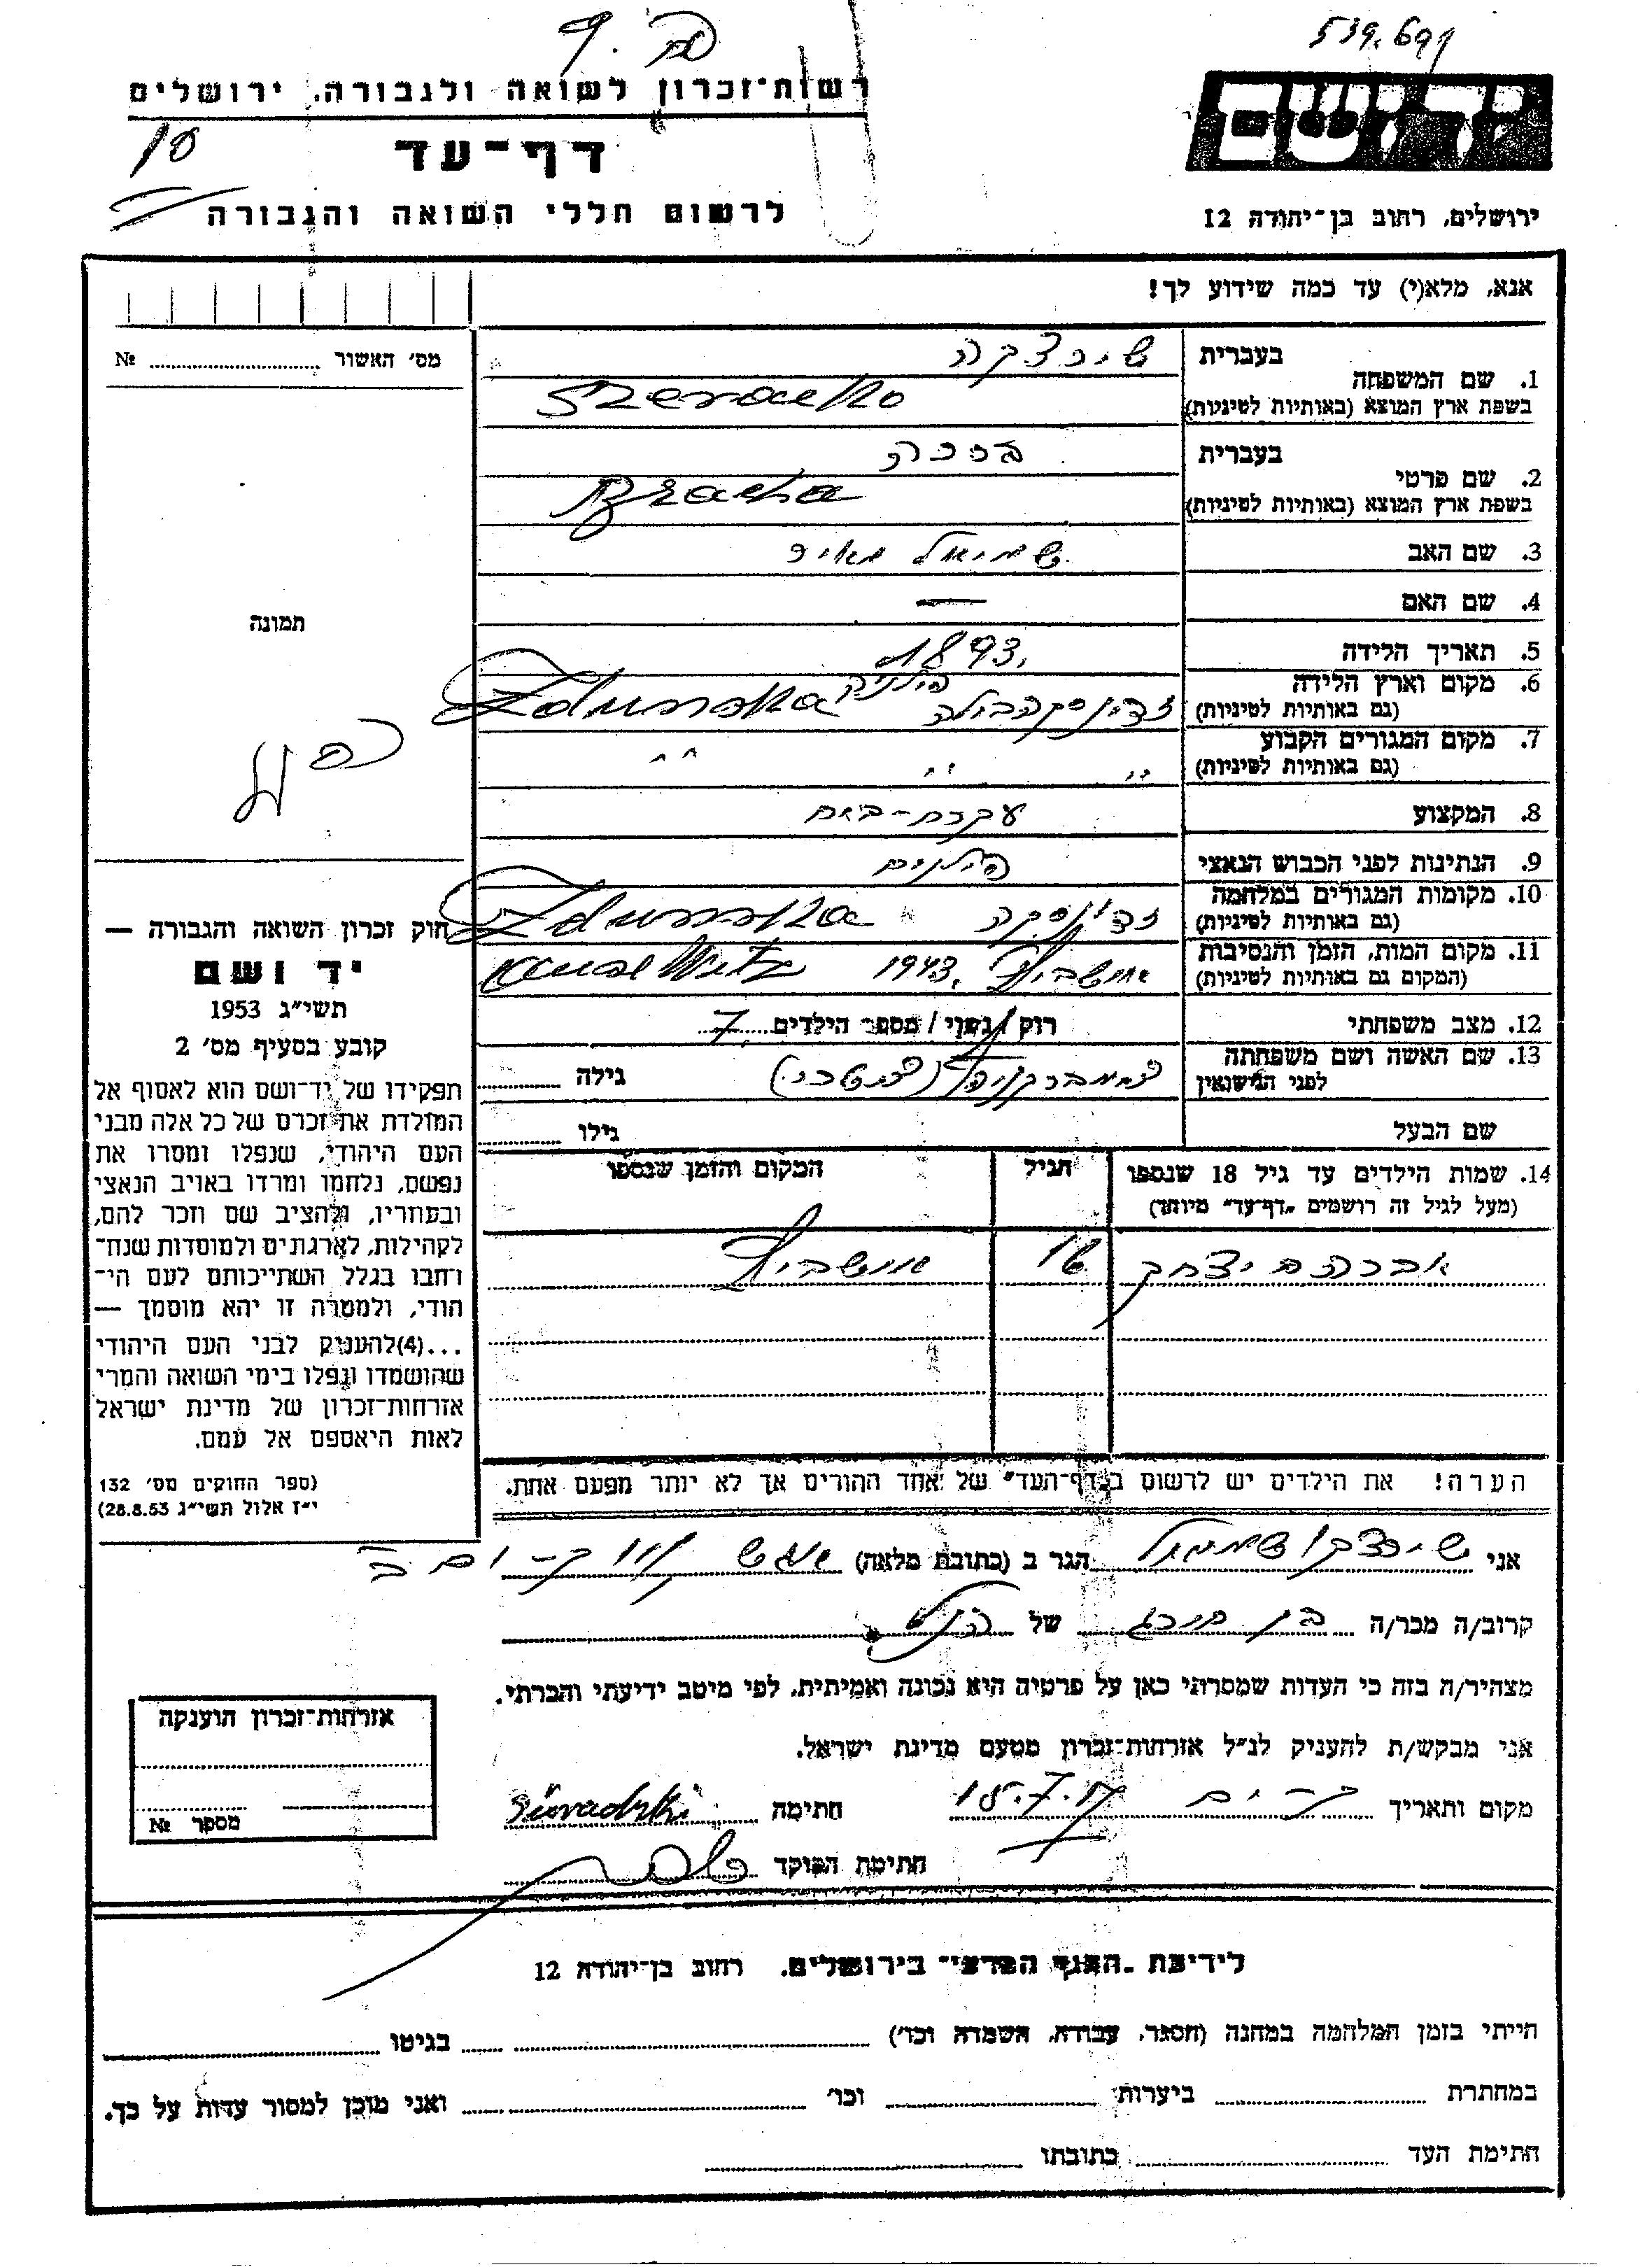 539.691
יד ושם
רשות־זכרון לשואה ולגבורה, ירושלים
דף־עד
10
לרשום חללי השואה והגבורה
ירושלים, רחוב בן־יהודה 12
אנא, מלא(י) עד כמה שידוע לך!
מס׳ האשור № 
1. שם המשפחה
בעברית
בשפת ארץ המוצא (באותיות לטיניות)
2. שם פרטי
בעברית ברכה
בשפת ארץ המוצא (באותיות לטיניות) Bracha
3. שם האב שמואל מאיר
4. שם האם —
5. תאריך הלידה 1893.
6. מקום וארץ הלידה
(גם באותיות לטיניות) Zdunska
7. מקום המגורים הקבוע
(גם באותיות לטיניות) " " "
8. המקצוע עקרת-בית
9. הנתינות לפני הכבוש הנאצי
10. מקומות המגורים במלחמה
(גם באותיות לטיניות) זדונסקה Zdunska
11. מקום המות, הזמן והנסיבות
(המקום גם באותיות לטיניות) אושביץ 1943.
12. מצב משפחתי רוק / נשוי / מספר הילדים 7
13. שם האשה ושם משפחתה
לפני הנישואין
גילה
שם הבעל
גילו
14. שמות הילדים עד גיל 18 שנספו
(מעל לגיל זה רושמים "דף־עד" מיוחד)
הגיל
המקום והזמן שנספו
אברהם יצחק 16 אושביץ
הערה! את הילדים יש לרשום ב"דף־העד" של אחד ההורים אך לא יותר מפעם אחת.
תמונה
חוק זכרון השואה והגבורה —
יד ושם
תשי״ג 1953
קובע בסעיף מס׳ 2
תפקידו של יד־ושם הוא לאסוף אל
המולדת את זכרם של כל אלה מבני
העם היהודי, שנפלו ומסרו את
נפשם, נלחמו ומרדו באויב הנאצי
ובעוזריו, ולהציב שם וזכר להם,
לקהילות, לארגונים ולמוסדות שנח־
רחבו בגלל השתייכותם לעם הי־
הודי, ולמטרה זו יהא מוסמך —
...(4)להעניק לבני העם היהודי
שהושמדו ונפלו בימי השואה והמרי
אזרחות־זכרון של מדינת ישראל
לאות היאספם אל עמם.
(ספר החוקים מס׳ 132
י״ז אלול תשי״ג 28.8.53)
אני הגר ב (כתובת מלאה)
קרוב/ה מכר/ה של הנ״ל
מצהיר/ה בזה כי העדות שמסרתי כאן על פרטיה היא נכונה ואמיתית, לפי מיטב ידיעתי והכרתי.
אני מבקש/ת להעניק לנ״ל אזרחות־זכרון מטעם מדינת ישראל.
מקום ותאריך חתימה
חתימת הפוקד
אזרחות־זכרון הוענקה
מספר №
לידיעת "האגף המדעי" בירושלים, רחוב בן־יהודה 12
הייתי בזמן המלחמה במחנה (הסגר, עבודה, השמדה וכו׳) בגיטו
במחתרת ביערות וכו׳ ואני מוכן למסור עדות על כך.
חתימת העד כתובתו